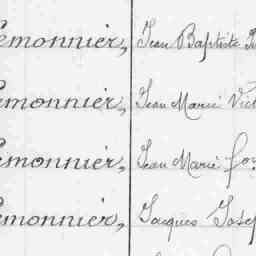 Lemonnier, Jean Baptiste
Lemonnier, Jean Marie Vict
Lemonnier, Jean Marie
Lemonnier, Jacques Josep